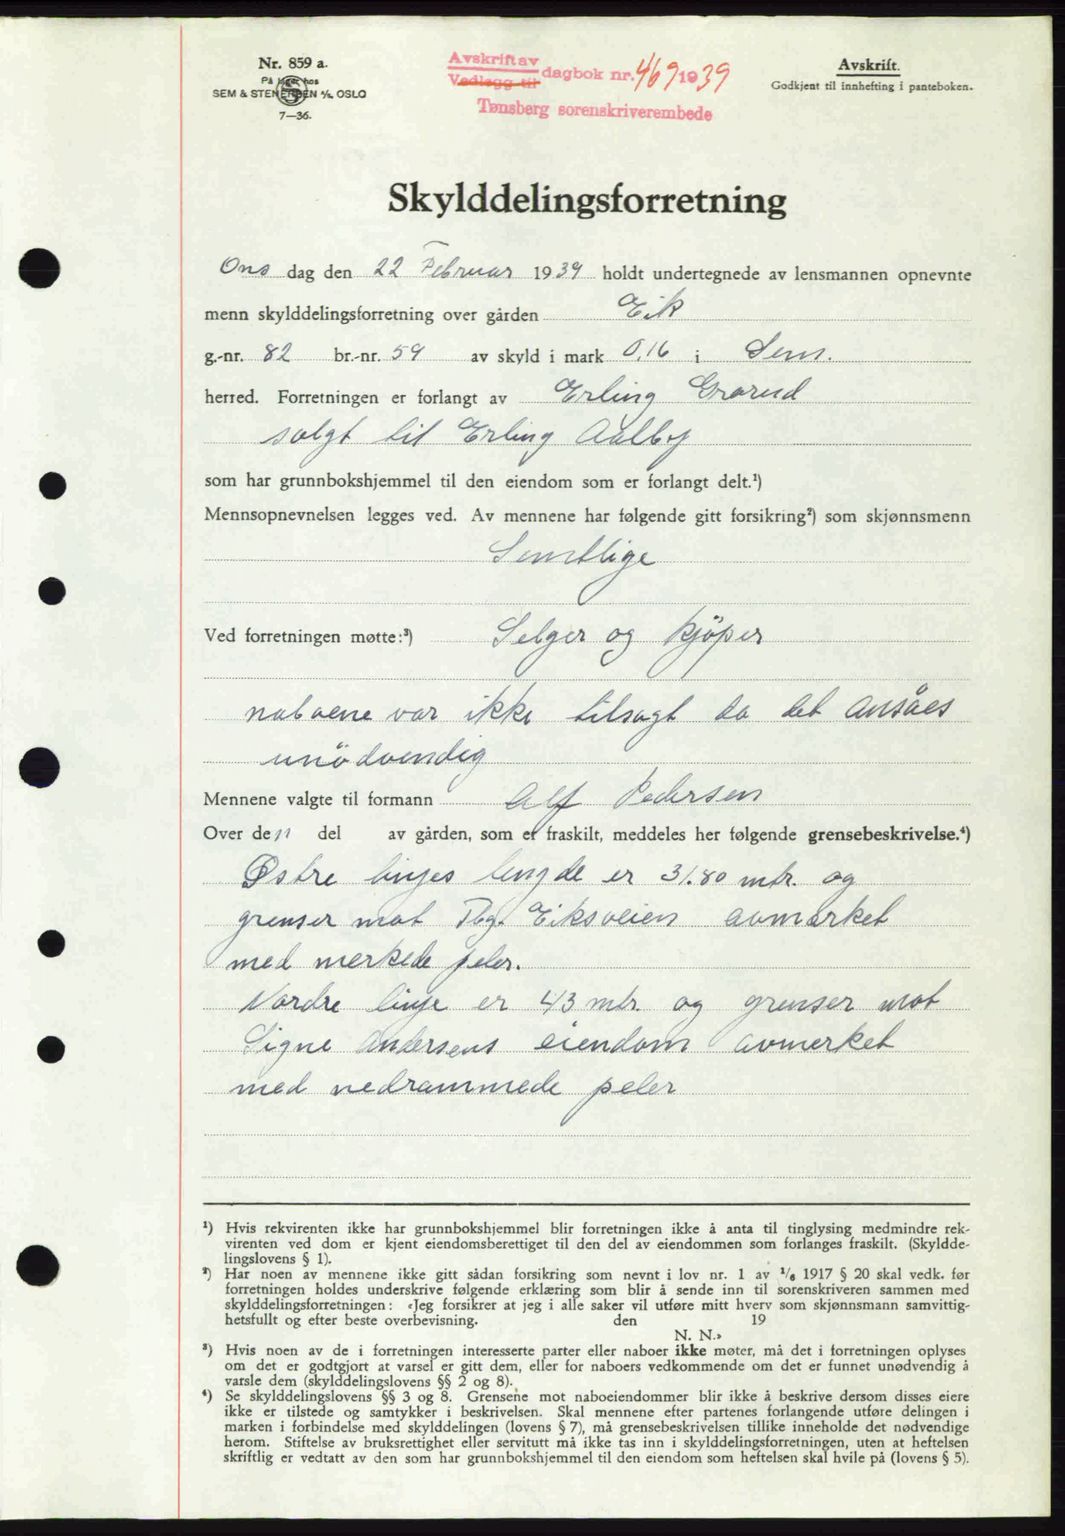 Nr. 859 a.
På lager hos
SEM & STENERSEN A/S, OSLO
7—36.
Avskrift av
Vedlegg til dagbok nr. 469 1939
Tønsberg sorenskriverembede
Avskrift.
Godkjent til innhefting i panteboken.
Skylddelingsforretning
Ons dag den 22 Februar 1939 holdt undertegnede av lensmannen opnevnte
menn skylddelingsforretning over gården Eik
g.-nr. 82 br.-nr. 59 av skyld i mark 0,16 i Sem.
herred. Forretningen er forlangt av Erling Grorud
solgt til Erling Aulby
som har grunnbokshjemmel til den eiendom som er forlangt delt.¹)
Mennsopnevnelsen legges ved. Av mennene har følgende gitt forsikring²) som skjønnsmenn
Semtlige
Ved forretningen møtte:³) Selger og kjöper
naboene var ikke tilsagt da det ansåes
unödvendig
Mennene valgte til formann Alf Pedersen
Over den del av gården, som er fraskilt, meddeles her følgende grensebeskrivelse.⁴)
Østre linjes lengde er 31.80 mtr. og
grenser mot Tbg. Eiksveien avmerket
med merkede peler.
Nordre linje er 43 mtr. og grenser mot
Signe Andersens eiendom avmerket
med nedrammede peler
¹) Hvis rekvirenten ikke har grunnbokshjemmel blir forretningen ikke å anta til tinglysing medmindre rek-
virenten ved dom er kjent eiendomsberettiget til den del av eiendommen som forlanges fraskilt. (Skyldde-
lingslovens § 1).
²) Har noen av mennene ikke gitt sådan forsikring som nevnt i lov nr. 1 av 1/6 1917 § 20 skal vedk. før
forretningen holdes underskrive følgende erklæring som blir å sende inn til sorenskriveren sammen med
skylddelingsforretningen: «Jeg forsikrer at jeg i alle saker vil utføre mitt hverv som skjønnsmann samvittig-
hetsfullt og efter beste overbevisning. den 19
N. N.»
³) Hvis noen av de i forretningen interesserte parter eller naboer ikke møter, må det i forretningen oplyses
om det er godtgjort at varsel er gitt dem, eller for naboers vedkommende om det er funnet unødvendig å
varsle dem (skylddelingslovens §§ 2 og 8).
⁴) Se skylddelingslovens §§ 3 og 8. Grensene mot naboeiendommer blir ikke å beskrive dersom disses eiere
ikke er tilstede og samtykker i beskrivelsen. Skal mennene efter partenes forlangende utføre delingen i
marken i forbindelse med skylddelingen (lovens § 7), må grensebeskrivelsen tillike inneholde det nødvendige
herom. Stiftelse av bruksrettighet eller servitutt må ikke tas inn i skylddelingsforretningen, uten at heftelsen
skriftlig er vedtatt av den som har grunnbokshjemmel til den eiendom som heftelsen skal hvile på (lovens § 5).